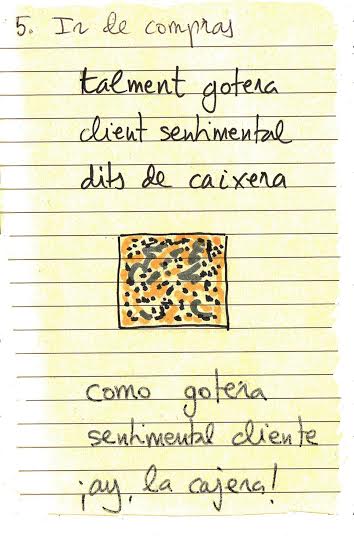 5. Ir de compras
talment gotera
client sentimental
dits de caixera
como gotera
sentimental cliente
¡ay, la cajera!